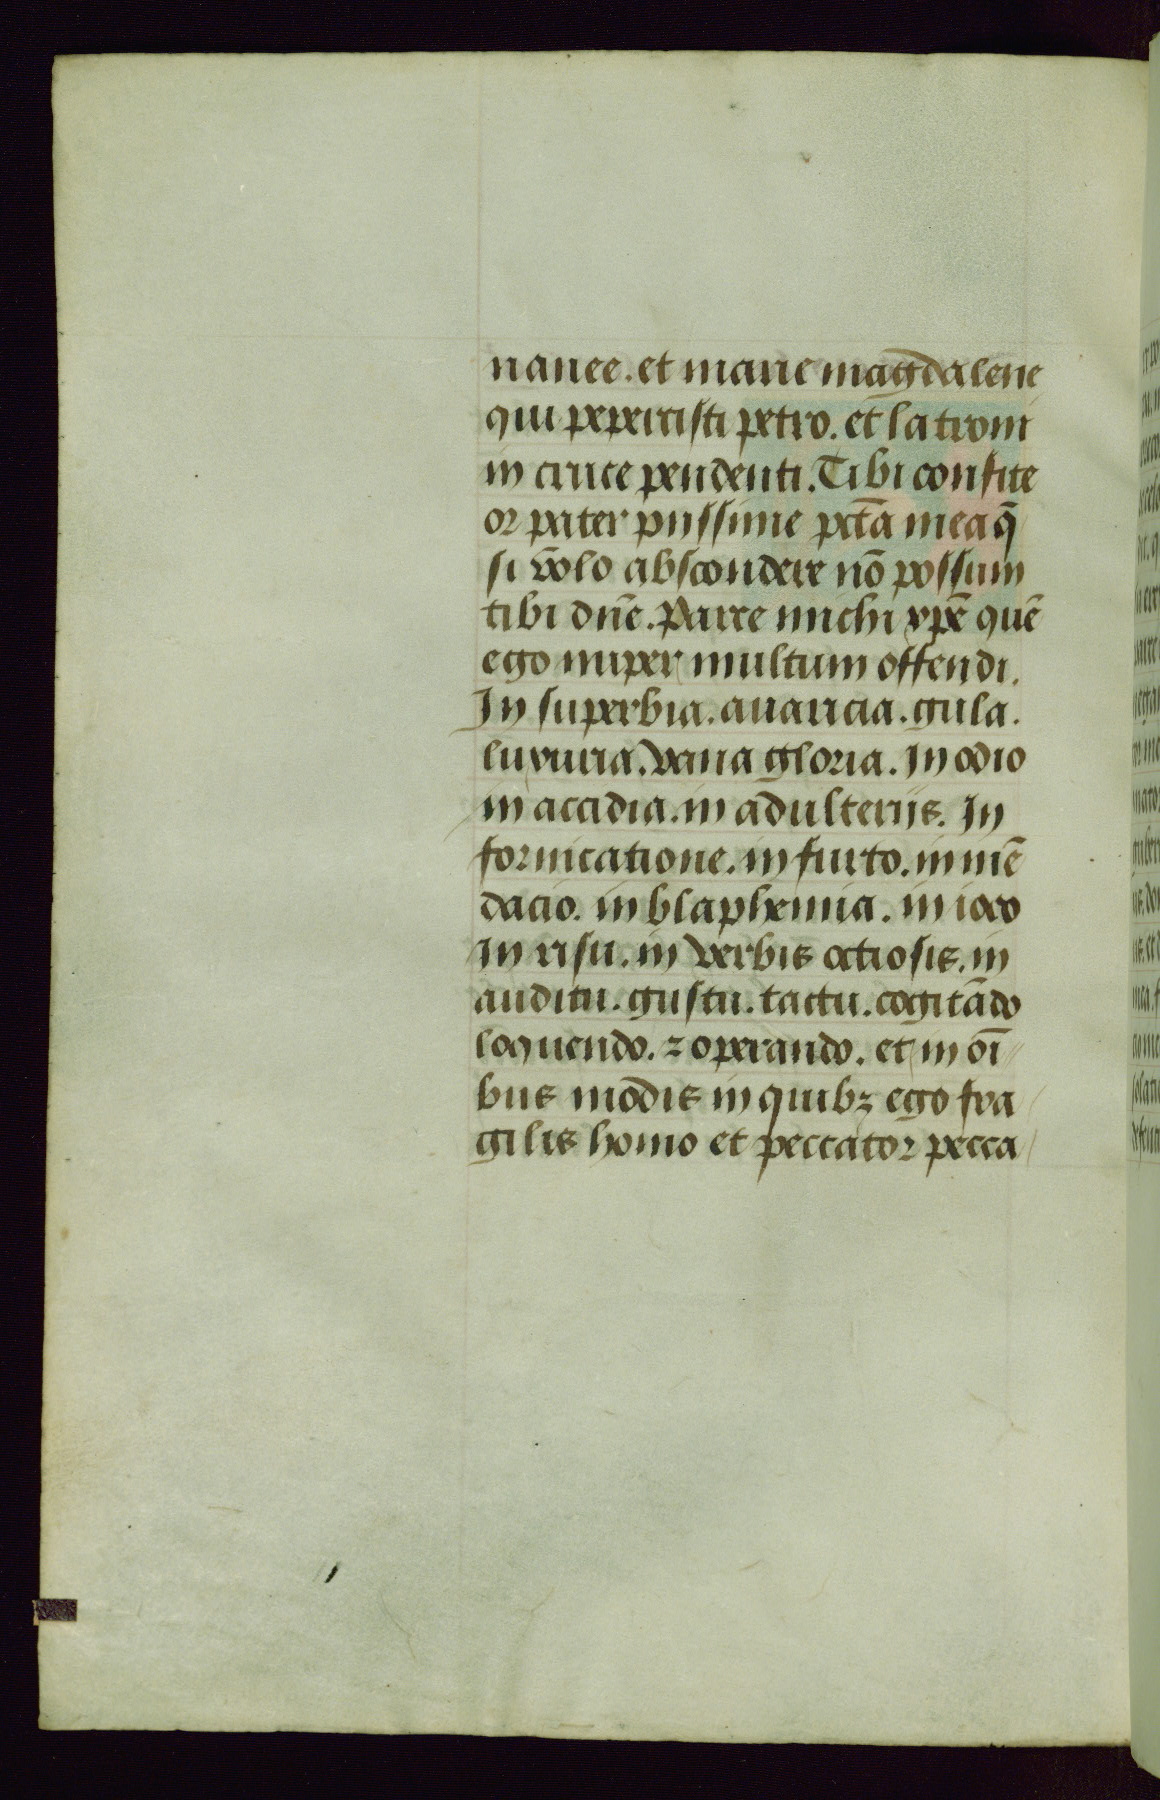 nanee. et marie magdalene
qui pepercisti petro. et latroni
in cruce pendenti. Tibi confite
or pater piissime pctã mea q̃
si volo abscondere nõ possum
tibi dñe. Parce michi xp̃e quẽ
ego nuper multum offendi.
In superbia. auaricia. gula.
luxuria. vana gloria. In odio
in accidia. in adulterijs. In
fornicatione. in furto. in mẽ
dacio. in blaphemia. in ioco
In risu. in verbis octiosis. in
auditu. gustu. tactu. cogitãdo
loquendo. ⁊ operando. et in oĩ
bus modis in quibꝫ ego fra
gilis homo et peccator pecca